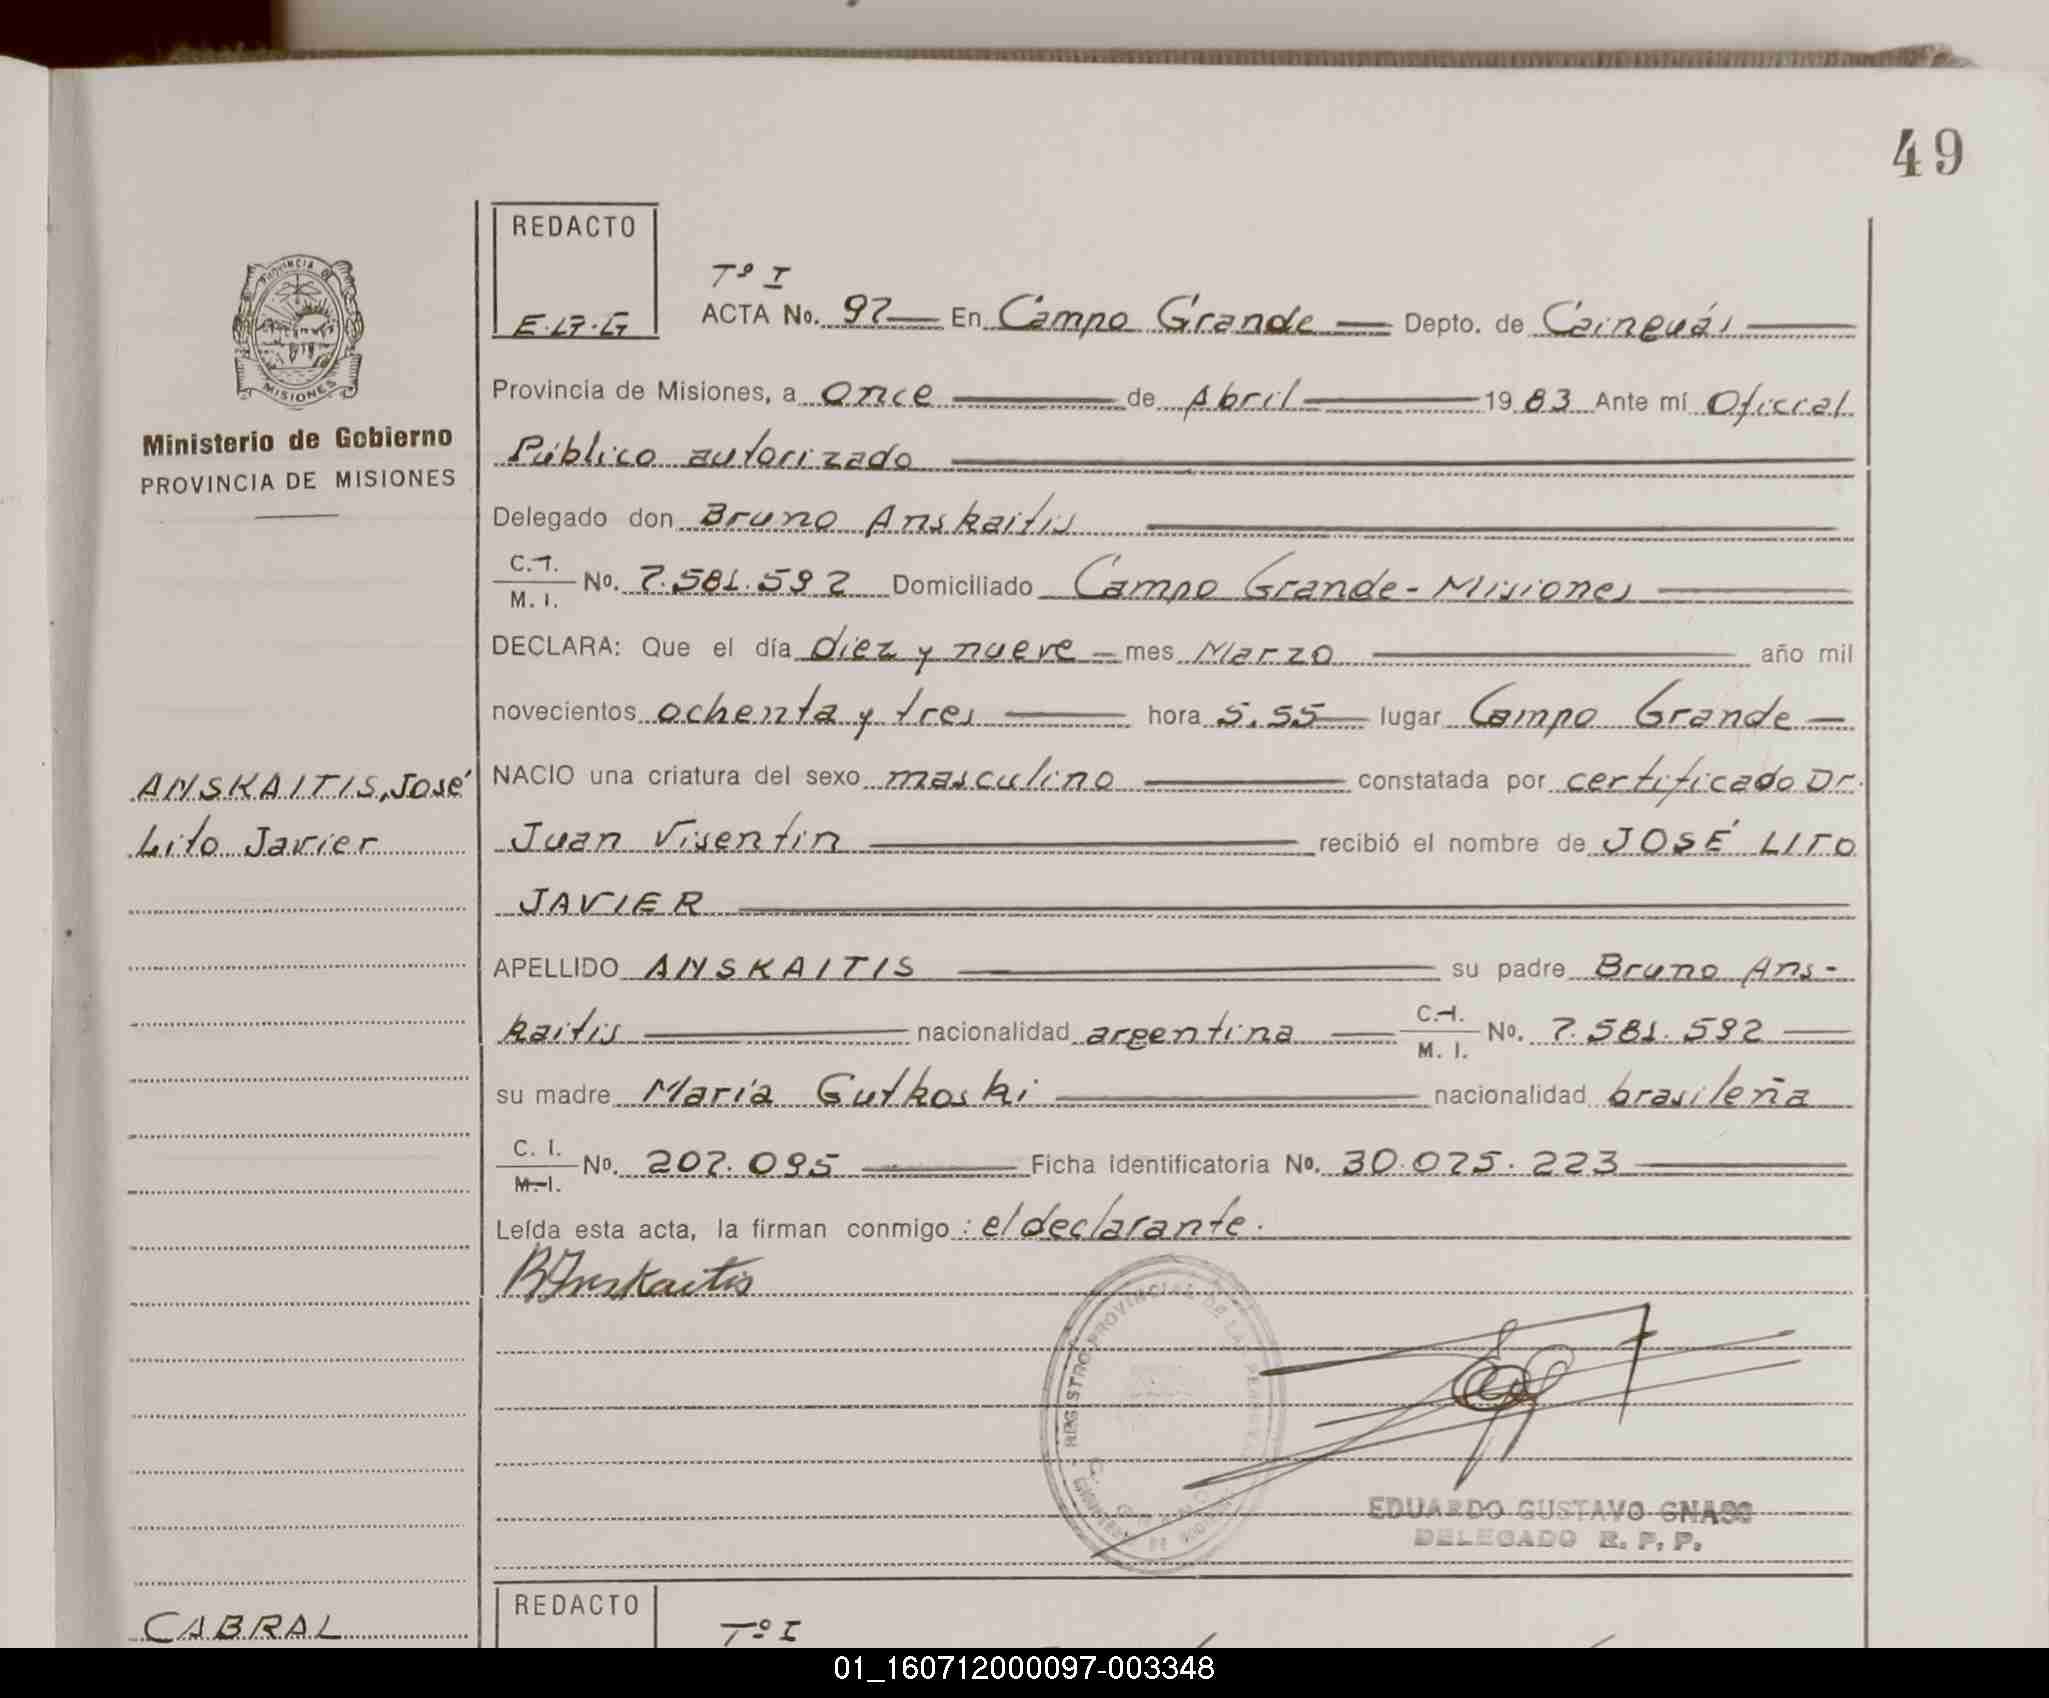 49
REDACTO
E.G.G
Tº I
ACTA No. 97 En Campo Grande Depto. de Cainguás
Provincia de Misiones, a once de Abril 1983 Ante mí Oficial
Público autorizado
Delegado don Bruno Anskaitis
C.I. M. I. No. 7.581.592 Domiciliado Campo Grande - Misiones
DECLARA: Que el día diez y nueve mes Marzo año mil
novecientos ochenta y tres hora 5.55 lugar Campo Grande
NACIO una criatura del sexo masculino constatada por certificado Dr.
Juan Visentin recibió el nombre de JOSÉ LITO
JAVIER
APELLIDO ANSKAITIS su padre Bruno Ans-
kaitis nacionalidad argentina C.I. M. I. No. 7.581.592
su madre María Gutkoski nacionalidad brasileña
C. I. M.I. No. 207.095 Ficha Identificatoria No. 30.075.223
Leída esta acta, la firman conmigo: el declarante.
B Anskaitis
REGISTRO PROVINCIAL DE LAS
EDUARDO GUSTAVO GNASS
DELEGADO R. P. P.
PROVINCIA DE
MISIONES
Ministerio de Gobierno
PROVINCIA DE MISIONES
ANSKAITIS, José
Lito Javier
CABRAL
REDACTO
Tº I
01_160712000097-003348